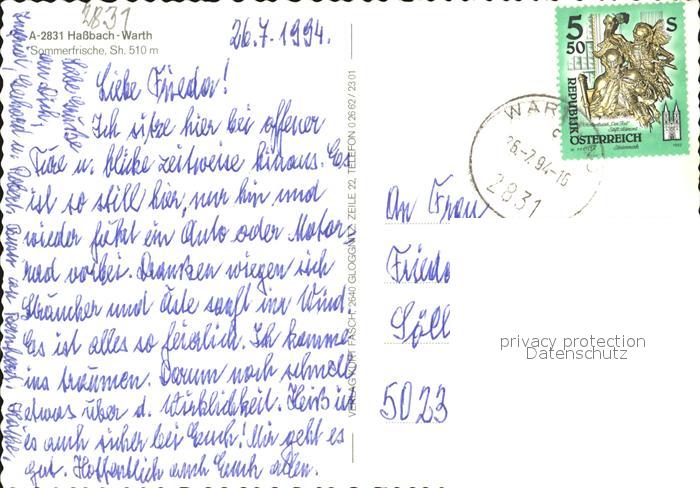 2831
A-2831 Haßbach-Warth
Sommerfrische, Sh. 510 m
26.7.1994.
Liebe Frieda!
Ich sitze hier bei offener
Türe u. blicke zeitweise hinaus. Es
ist so still hier, nur hin und
wieder fährt ein Auto oder Motor-
rad vorbei. Draußen wiegen sich
Sträucher und Äste sanft im Wind.
Es ist alles so feierlich. Ich komme
ins träumen. Darum noch schnell
etwas über d. Wirklichkeit. Heiß ist
es auch sicher bei Euch! Mir geht es
gut. Hoffentlich auch Euch allen.
Liebe Grüße
an Dich,
VERLAG KURT FASCH, 2640 GLOGGNITZ, ZEILE 22, TELEFON 0 26 62 / 23 01
5 50 S
REPUBLIK
ÖSTERREICH
WAR
26.-7.94-16
2831
An Frau
Frieda
Söll
5023
privacy protection
Datenschutz